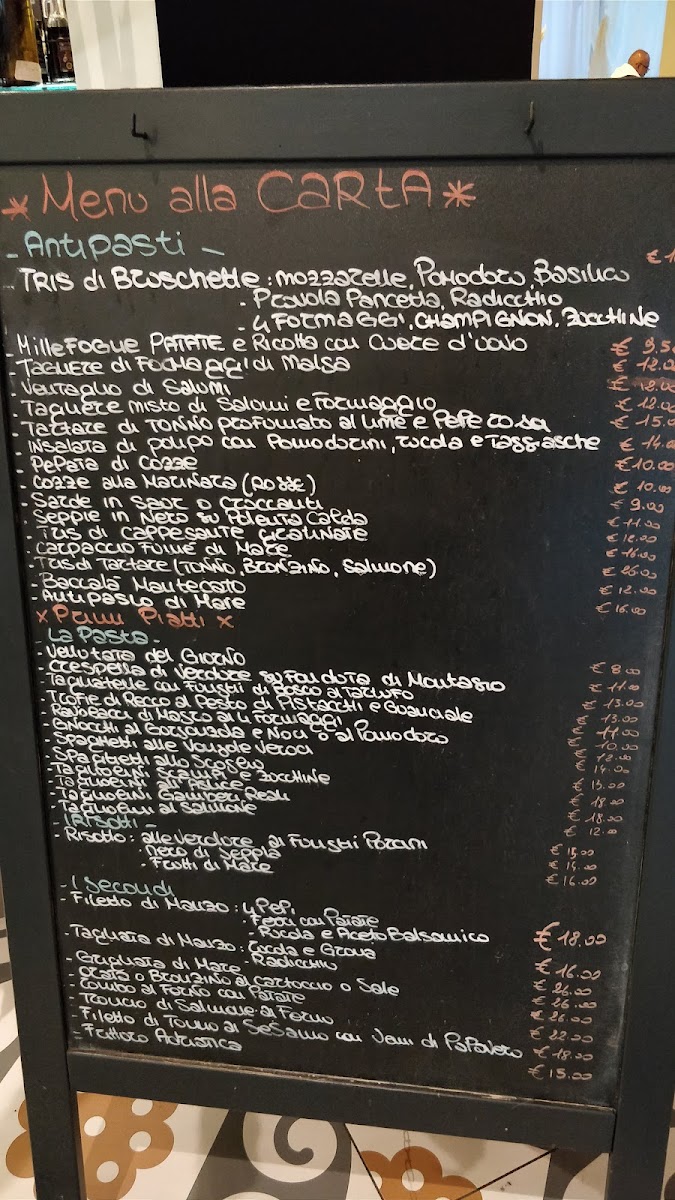 * Menu alla CARtA *
- Antipasti -
- TRIS di Bruschette : mozzarelle, Pomodoro, Basilico
- Provola Pancetta, Radicchio
- 4 FORMAGGI, CHAMPIGNON, Zucchine
- MilleFOGLIE PATATE e Ricotta con Cuore d'uovo € 9.50
- Tagliere di Formaggi di Malga € 12.00
- Ventaglio di Salumi € 12.00
- Tagliere misto di Salumi e Formaggio € 12.00
- Tartare di TONNO profumato al lime e PEPE rosa € 15.00
- INSalata di polipo con Pomodorini, rucola e Taggiasche € 14.00
- PePata di Cozze € 10.00
- Cozze alla Marinara (ROSSE) € 10.00
- Sarde in Saor o Croccanti € 9.00
- Seppie in Nero su Polenta Calda € 11.00
- Tris di CAPPESANTE GRATINATE € 12.00
- Carpaccio Fumé di Mare € 16.00
- Tris di Tartare (TONNO, BRONZINO, Salmone) € 26.00
- Baccalà Mantecato € 12.00
- Antipasto di Mare € 16.00
x Primi Piatti x
La Pasta -
- Vellutata del Giorno € 8.00
- Crespella di Verdure su Fonduta di Montasio € 11.00
- Tagliatelle con Funghi di Bosco al Tartufo € 13.00
- Trofie di Recco al Pesto di Pistacchi e Guanciale € 13.00
- di Manzo ai 4 Formaggi € 11.00
- GNOCCHI al Gorgonzola e Noci o al Pomodoro € 10.00
- Spaghetti alle Vongole Veraci € 12.00
- Spaghetti allo Scoglio € 14.00
- Tagliolini Scampi e Zucchine € 15.00
- Tagliolini all'Astice € 18.00
- Tagliolini Gamberi Reali € 18.00
- Tagliolini al Salmone € 12.00
- I Risotti -
- Risotto : alle Verdure ai Funghi Porcini € 15.00
- Nero di Seppia € 14.00
- Frutti di Mare € 16.00
- I Secondi
- Filetto di Manzo : 4 PePi
- Ferri con Patate
- Rucola e Aceto Balsamico € 18.00
- Tagliata di Manzo : Rucola e Grana
- Radicchio € 16.00
- Grigliata di Mare € 26.00
- Orata o Bronzino al cartoccio o Sale € 26.00
- Rombo al Forno con Patate € 26.00
- Trancio di Salmone al Forno € 22.00
- Filetto di Tonno al Sesamo con Semi di PaPavero € 18.00
- Frittura Adriatica € 15.00